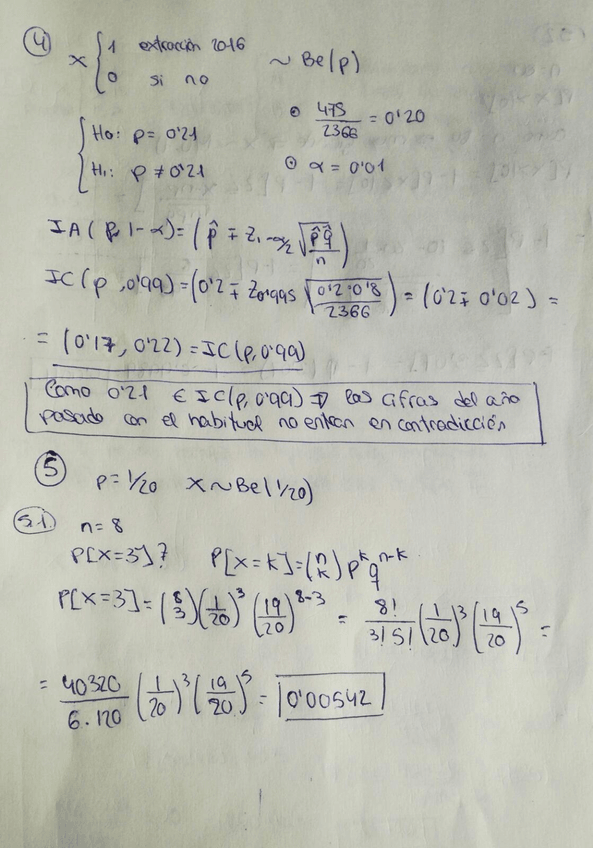 4
X { 1 extracción 2016
0 si no
~ Be(p)
{ H0: p = 0'21
H1: p ≠ 0'21
⊙ 475/2366 = 0'20
⊙ α = 0'01
IA(p, 1-α) = (p̂ ∓ z1-α/2 √(p̂q̂/n))
IC(p, 0'99) = (0'2 ∓ z0'995 √(0'2·0'8/2366)) = (0'2 ∓ 0'02) =
= (0'17, 0'22) = IC(p, 0'99)
Como 0'21 ∈ IC(p, 0'99) ⇒ las cifras del año
pasado con el habitual no entran en contradicción
5
p = 1/20 X ~ Be(1/20)
5.1. n = 8
P[X=3]? P[X=k] = (n k) p^k q^(n-k)
P[X=3] = (8 3) (1/20)^3 (19/20)^(8-3) = 8!/(3!5!) (1/20)^3 (19/20)^5 =
= 40320/(6·120) (1/20)^3 (19/20)^5 = 0'00542